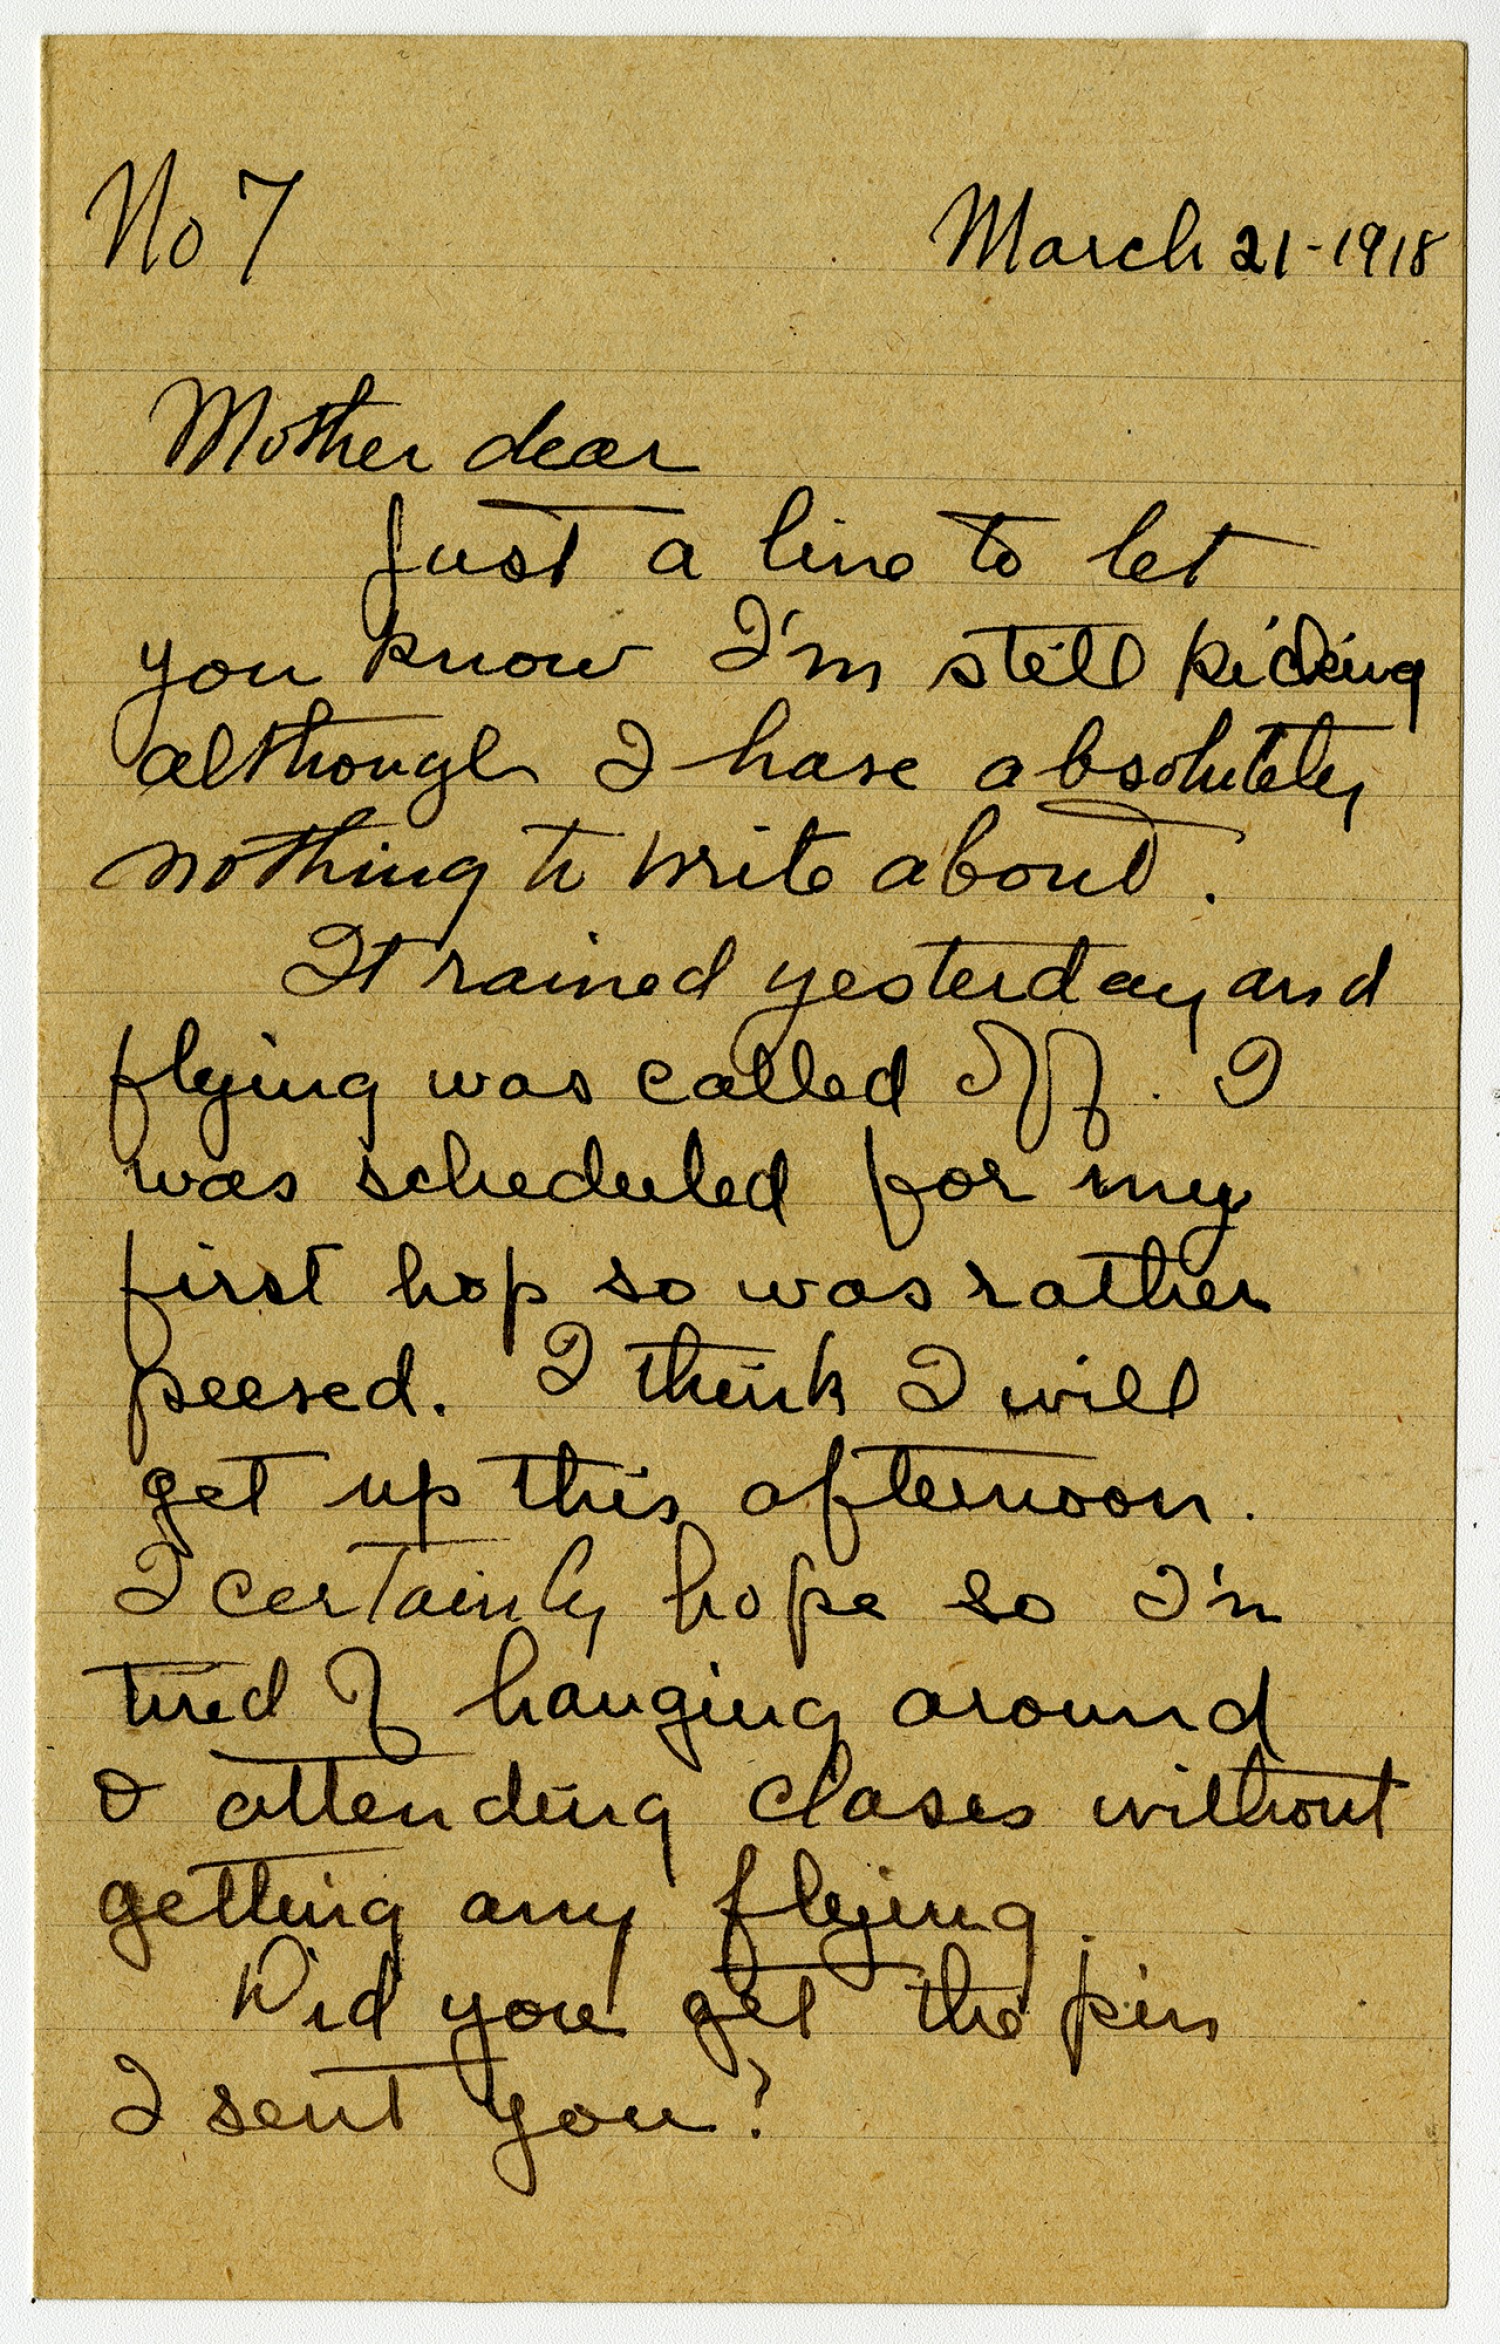 No 7 March 21-1918
Mother dear
Just a line to let
you know I'm still kicking
although I have absolutely
nothing to write about.
It rained yesterday and
flying was called off. I
was scheduled for my
first hop so was rather
peeved. I think I will
get up this afternoon.
I certainly hope so I'm
tired of hanging around
& attending clases without
getting any flying.
Did you get the pin
I sent you?